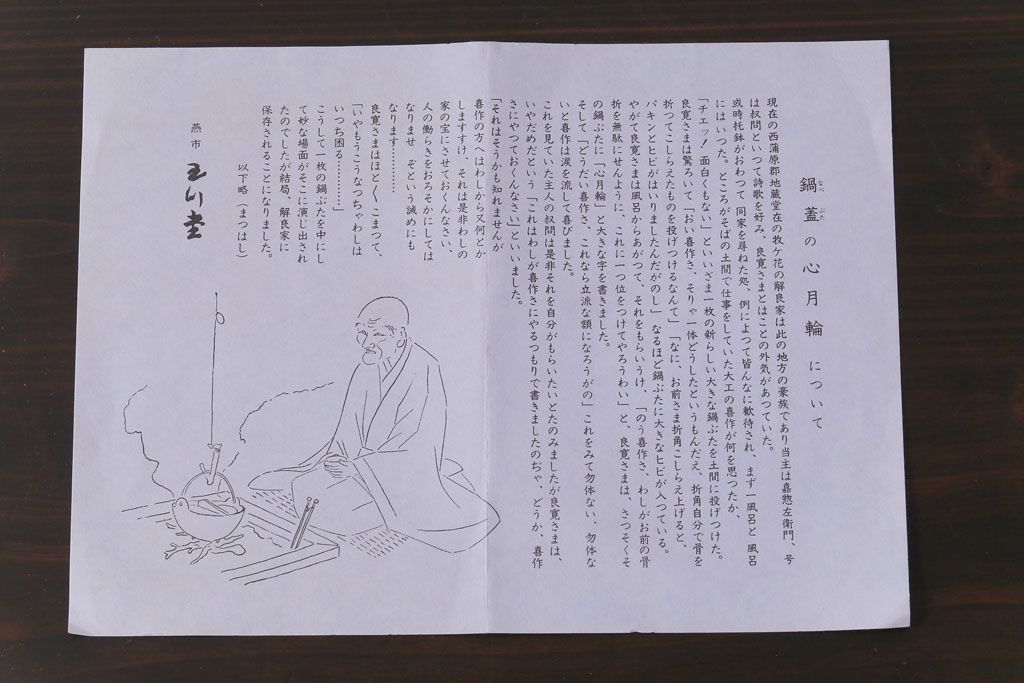 鍋蓋の心月輪について
なべ ぶた
現在の西蒲原郡地蔵堂在の牧ケ花の解良家は此の地方の豪族であり当主は嘉惣左衛門、号
は叔問といつて詩歌を好み、良寛さまとはことの外気があつていた。
或時托鉢がおわつて 同家を尋ねた処、例によつて皆んなに歓待され、まず一風呂と 風呂
にはいつた。ところがそばの土間で仕事をしていた大工の喜作が何を思つたか、
「チエッ! 面白くもない」といいざま一枚の新らしい大きな鍋ぶたを土間に投げつけた。
良寛さまは驚ろいて「おい喜作さ、そりゃ一体どうしたというもんだえ、折角自分で骨を
折つてこしらえたものを投げつけるなんて」「なに、お前さま折角こしらえ上げると、
パキンとヒビがはいりましたんだがのし」 なるほど鍋ぶたに大きなヒビが入つている。
やがて良寛さまは風呂からあがつて、それをもらいうけ、「のう喜作さ、わしがお前の骨
折を無駄にせんように、これに一つ位をつけてやろうわい」と、良寛さまは、さつそくそ
の鍋ぶたに「心月輪」と大きな字を書きました。
そして「どうだい喜作さ、これなら立派な額になろうがの」これをみて勿体ない、勿体な
いと喜作は涙を流して喜びました。
これを見ていた主人の叔問は是非それを自分がもらいたいとたのみましたが良寛さまは、
いやだめだという「これはわしが喜作さにやるつもりで書きましたのぢゃ、どうか、喜作
さにやつておくんなさい」といいました。
「それはそうかも知れませんが
喜作の方へはわしから又何とか
しますすけ、それは是非わしの
家の宝にさせておくんなさい、
人の働らきをおろそかにしては
なりませ ぞという誡めにも
なります…………
良寛さまはほと〱こまつて、
「いやもうこうなつちゃわしは
いつち困る…………」
こうして一枚の鍋ぶたを中にし
て妙な場面がそこに演じ出され
たのでしたが結局、解良家に
保存されることになりました。
以下略(まつはし)
燕市
玉川堂